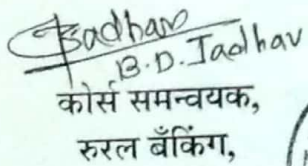 Jadhav
B.D. Jadhav
कोर्स समन्वयक,
रुरल बँकिंग,